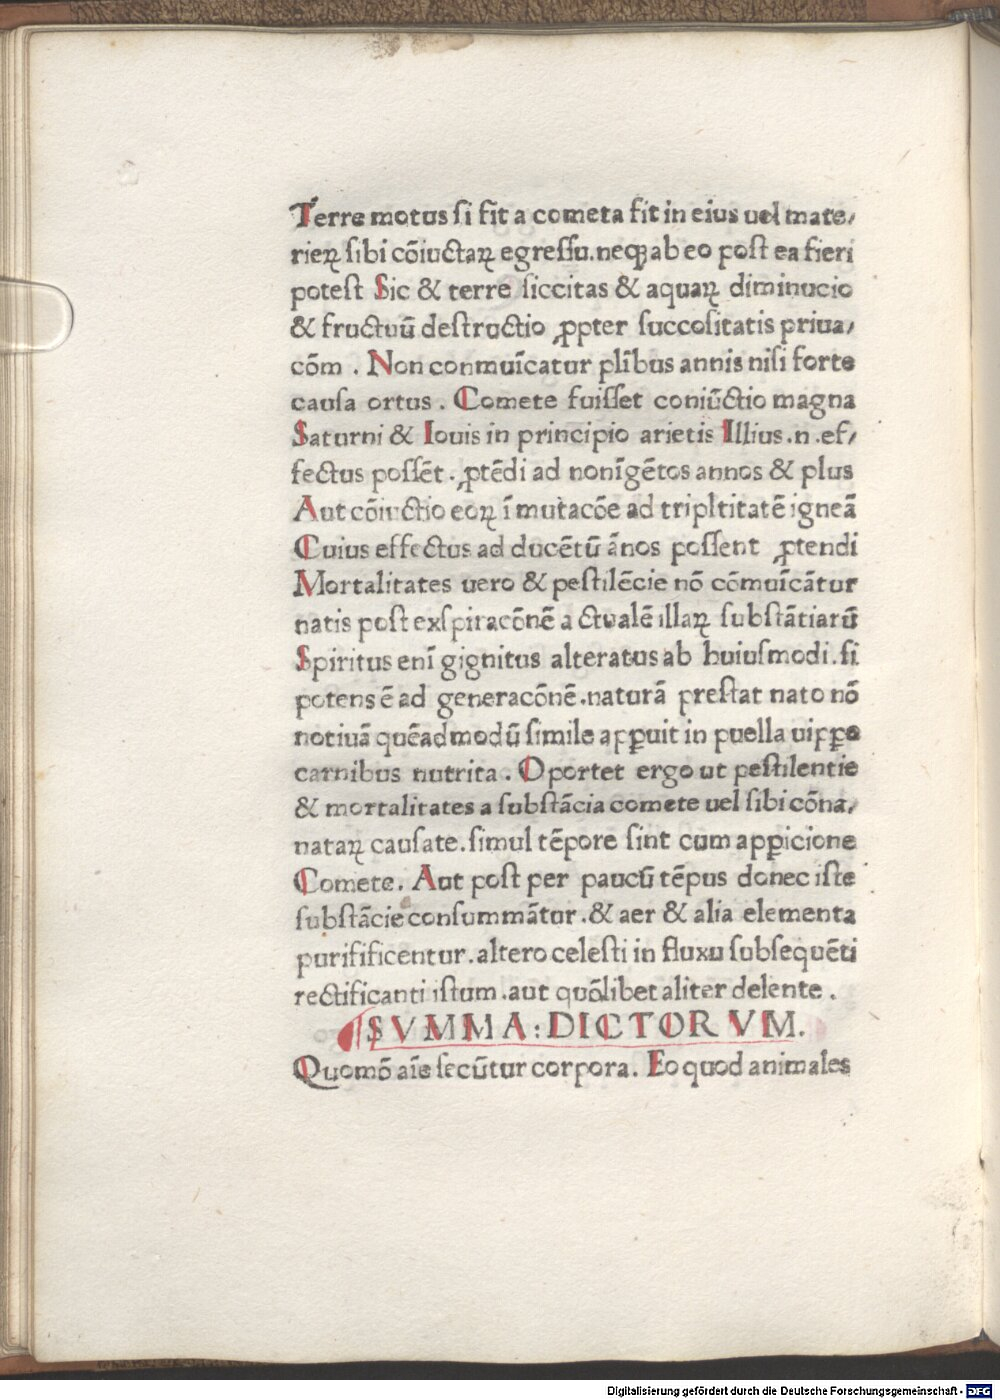 Terre motus ſi fit a cometa fit in eius uel mate/
rieꝝ ſibi cõiuctaꝝ egreſſu.neqꝫ ab eo poſt ea fieri
poteſt Sic & terre ſiccitas & aquaꝝ diminucio
& fructuū deſtructio ꝓpter ſuccoſitatis priua/
cōm . Non conmuīcatur plībus annis niſi forte
cauſa ortus . Comete fuiſſet coniūctio magna
Saturni & Iouis in principio arietis Illius.n.ef/
fectus poſſēt . ꝓtēdi ad nonīgētos annos & plus
Aut cōiuctio eoꝝ ī mutacōe ad tripltitatē igneā
Cuius effectus ad ducētū ānos poſſent ꝓtendi
Mortalitates uero & peſtilēcie nō cōmuīcātur
natis poſt exſpiracōnē a ctualē illaꝝ ſubſtātiarū
Spiritus enī gignitus alteratus ab huiuſmodi.ſi
potens ē ad generacōnē.naturā preſtat nato nō
notiuā quēadmodū ſimile apꝑuit in puella uipꝑe
carnibus nutrita . Oportet ergo ut peſtilentie
& mortalitates a ſubſtācia comete uel ſibi cōna/
nataꝝ cauſate.ſimul tēpore ſint cum apꝑicione
Comete. Aut poſt per paucū tēpus donec iſte
ſubſtācie conſummātur.& aer & alia elementa
purifificentur.altero celeſti in fluxu ſubſequēti
rectificanti iſtum.aut quōlibet aliter delente .
SVMMA:DICTORVM.
Quomō aīe ſecūtur corpora. Eo quod animales
Digitalisierung gefördert durch die Deutsche Forschungsgemeinschaft - DFG